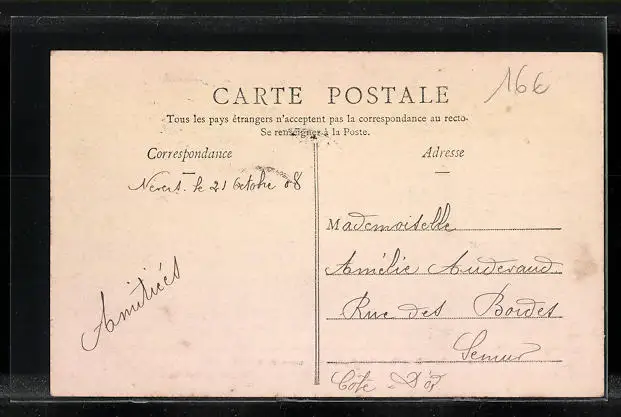 16€
CARTE POSTALE
Tous les pays étrangers n'acceptent pas la correspondance au recto.
Se renseigner à la Poste.
Correspondance
Adresse
Nevers. le 21 Octobre 08
Amitiées
Mademoiselle
Amélie Auderaud
Rue des Bordes
Semur
Côte - D'or